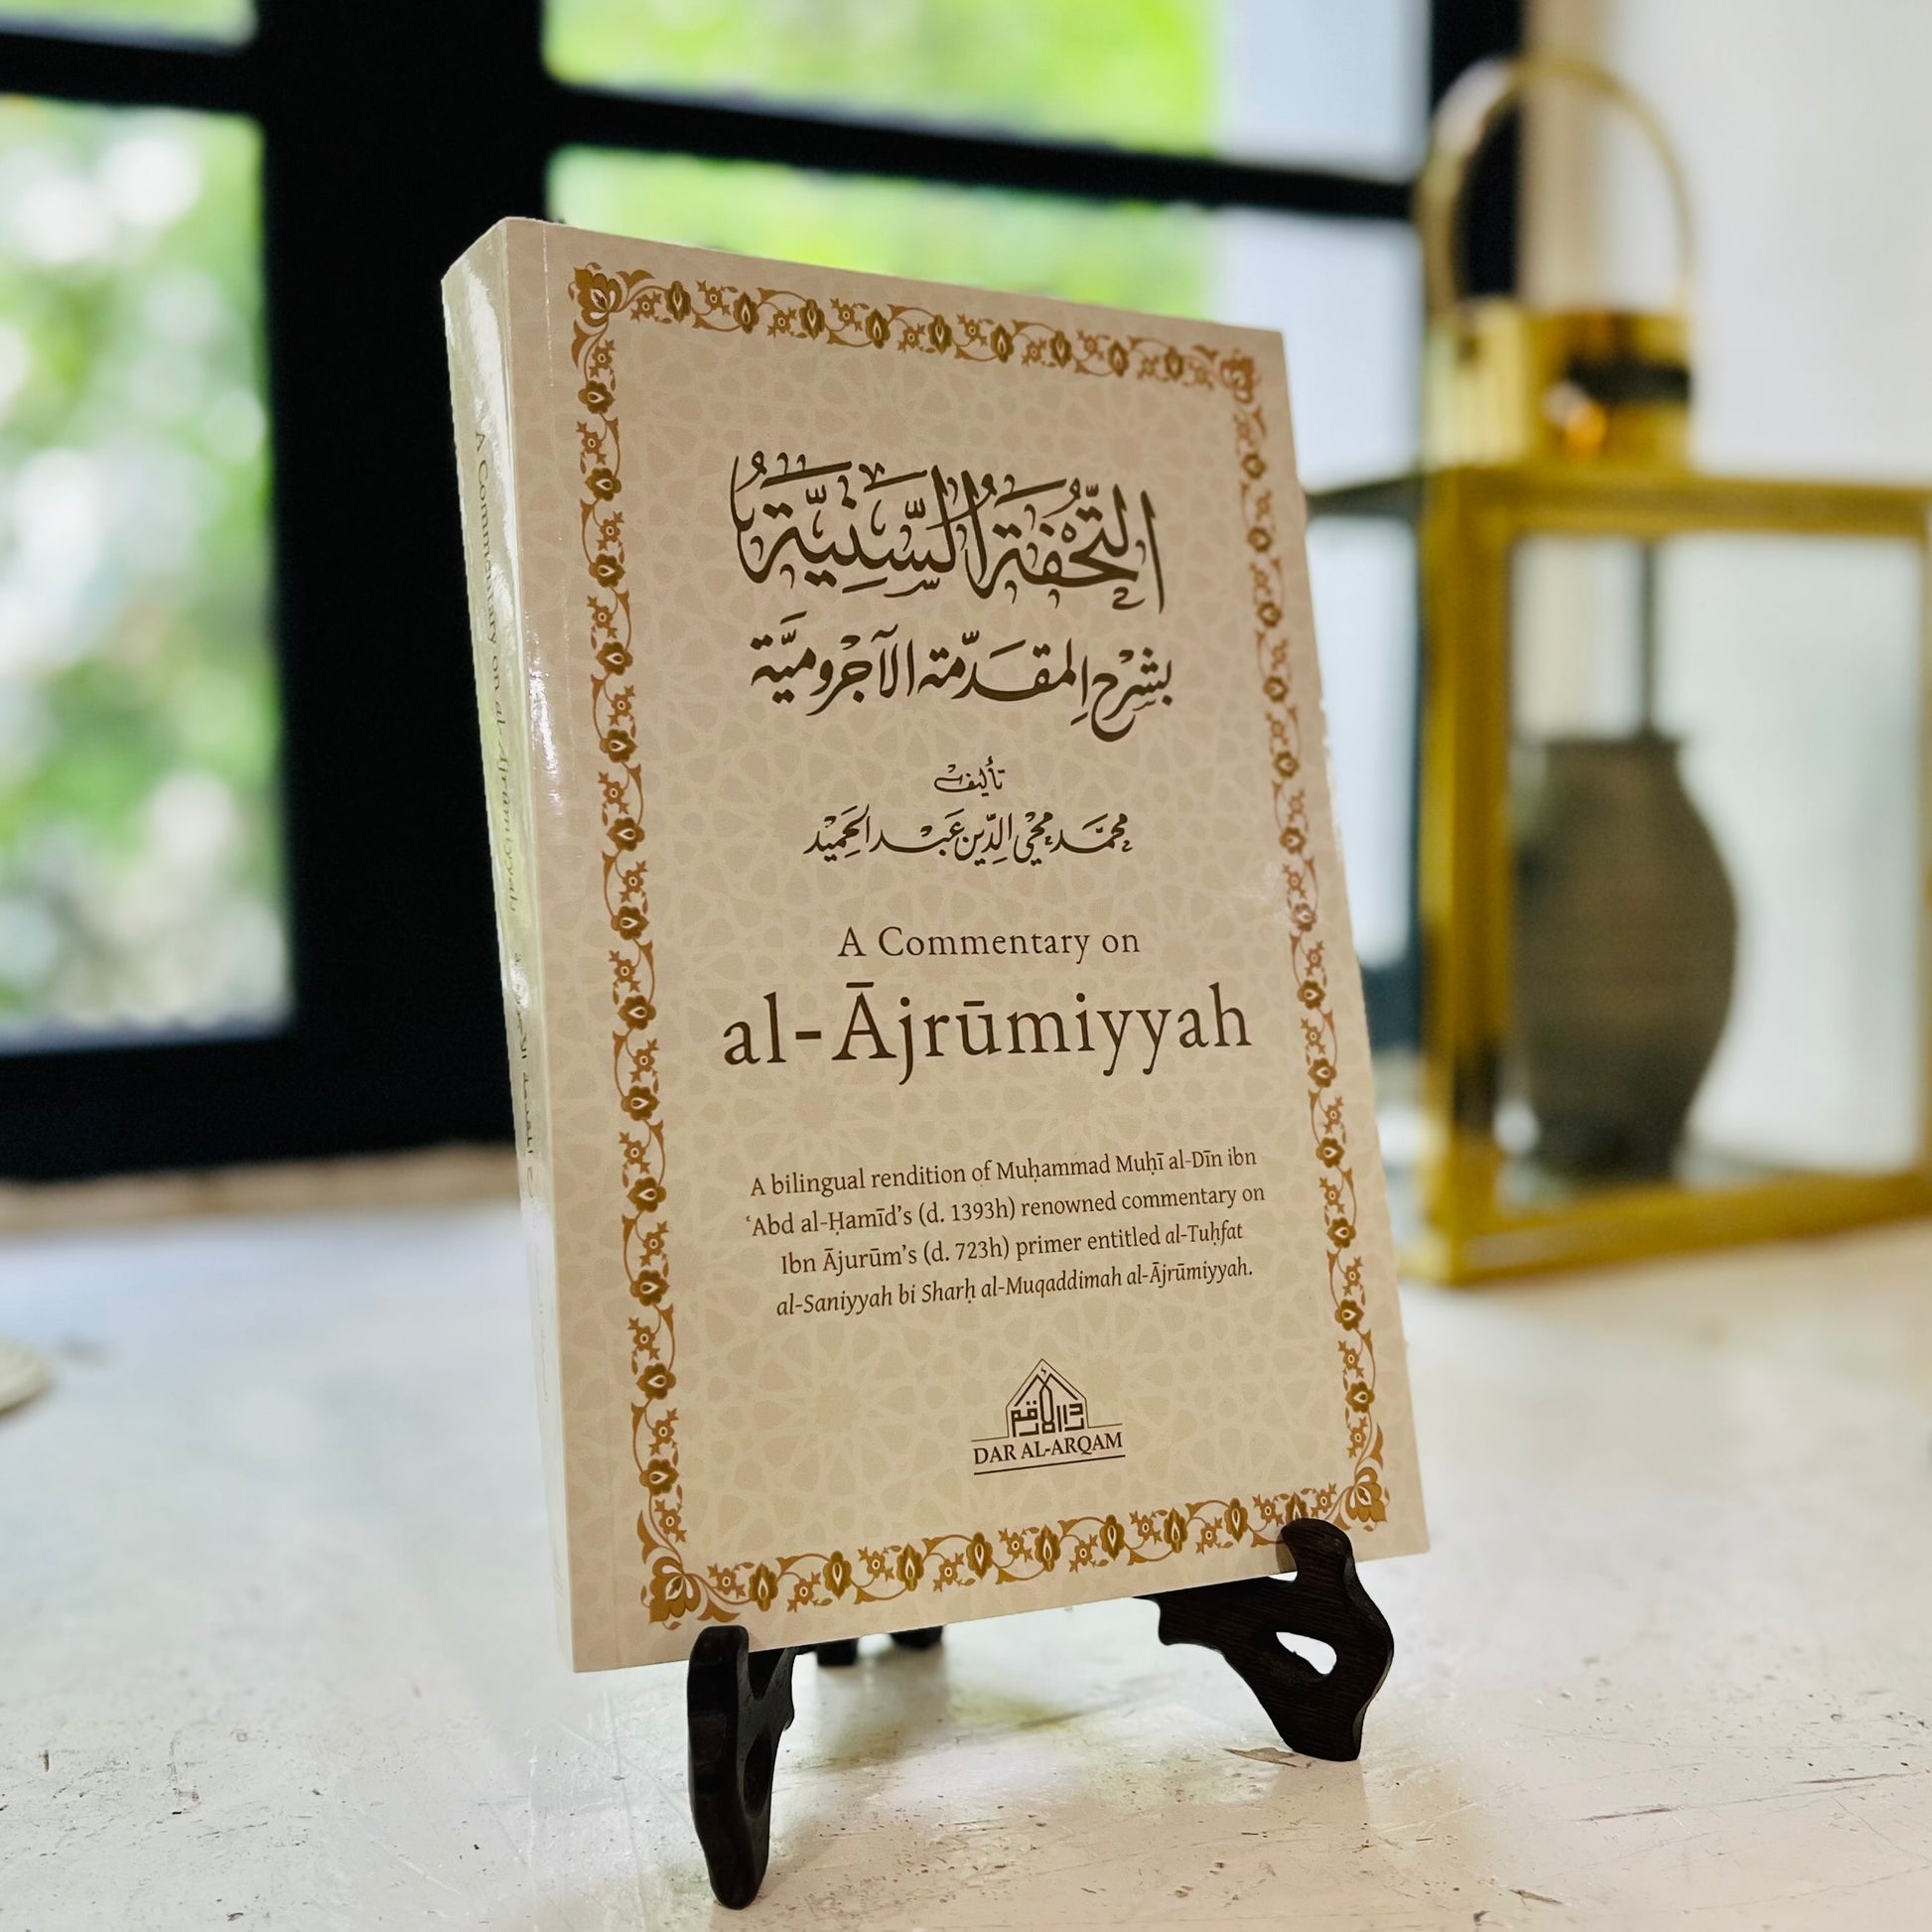 التُّحْفَةُ السَّنِيَّةُ
بشَرْحِ المقَدِّمَة الآجْرُوميَّة
تأليف
محمَّد محْيي الدِّين عَبْد الحَمِيْد
A Commentary on
al-Ājrūmiyyah
A bilingual rendition of Muḥammad Muḥī al-Dīn ibn
ʿAbd al-Ḥamīd’s (d. 1393h) renowned commentary on
Ibn Ājurūm’s (d. 723h) primer entitled al-Tuḥfat
al-Saniyyah bi Sharḥ al-Muqaddimah al-Ājrūmiyyah.
دار الأرقم
DAR AL-ARQAM
A Commentary on al-Ājrūmiyyah